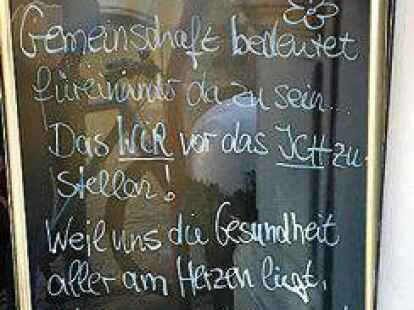 Gemeinschaft bedeutet
füreinander da zu sein...
Das WIR vor das ICH zu
stellen!
Weil uns die Gesundheit
aller am Herzen liegt,